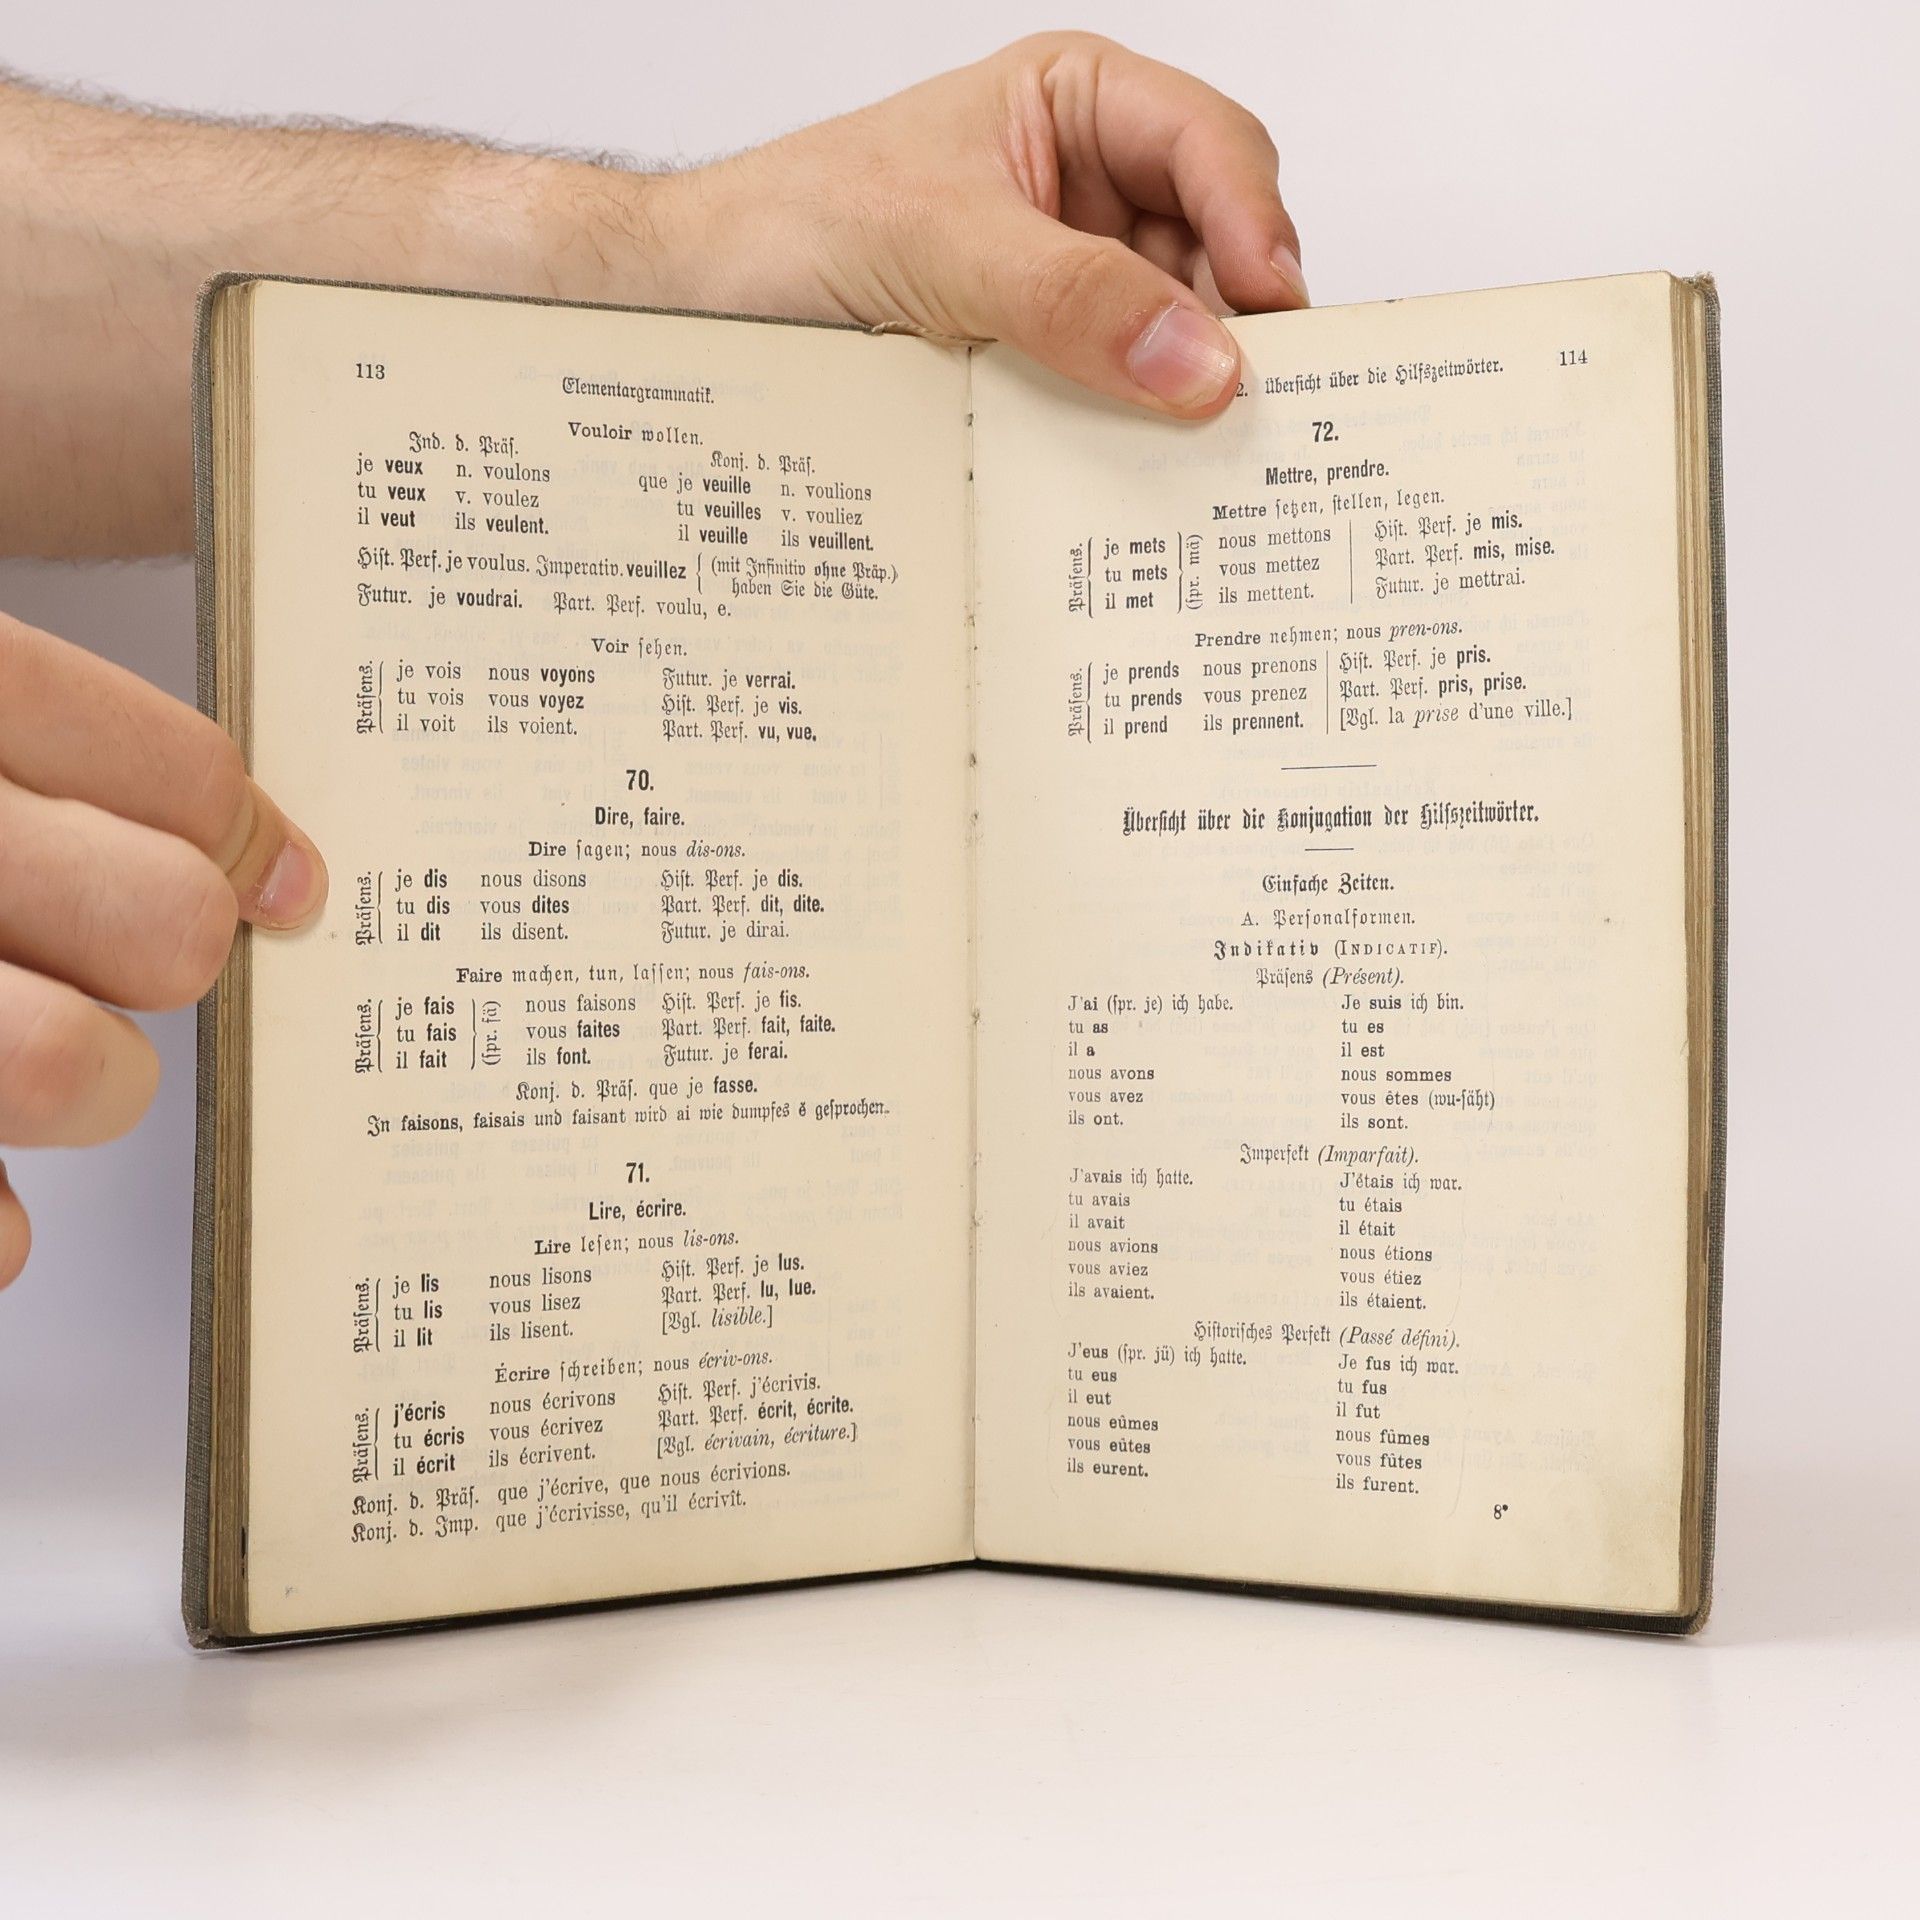 113
Elementargrammatik.
Vouloir wollen.
Ind. d. Präs. Konj. d. Präs.
je veux n. voulons que je veuille n. voulions
tu veux v. voulez tu veuilles v. vouliez
il veut ils veulent. il veuille ils veuillent.
Hist. Perf. je voulus. Imperativ. veuillez { (mit Infinitiv ohne Präp.)
haben Sie die Güte.
Futur. je voudrai. Part. Perf. voulu, e.
Voir sehen.
Präsens.
je vois nous voyons Futur. je verrai.
tu vois vous voyez Hist. Perf. je vis.
il voit ils voient. Part. Perf. vu, vue.
70.
Dire, faire.
Dire sagen; nous dis-ons.
Präsens.
je dis nous disons Hist. Perf. je dis.
tu dis vous dites Part. Perf. dit, dite.
il dit ils disent. Futur. je dirai.
Faire machen, tun, lassen; nous fais-ons.
Präsens.
je fais nous faisons Hist. Perf. je fis.
tu fais (spr. fä) vous faites Part. Perf. fait, faite.
il fait ils font. Futur. je ferai.
Konj. d. Präs. que je fasse.
In faisons, faisais und faisant wird ai wie dumpfes ĕ gesprochen.
71.
Lire, écrire.
Lire lesen; nous lis-ons.
Präsens.
je lis nous lisons Hist. Perf. je lus.
tu lis vous lisez Part. Perf. lu, lue.
il lit ils lisent. [Vgl. lisible.]
Écrire schreiben; nous écriv-ons.
Präsens.
j'écris nous écrivons Hist. Perf. j'écrivis.
tu écris vous écrivez Part. Perf. écrit, écrite.
il écrit ils écrivent. [Vgl. écrivain, écriture.]
Konj. d. Präs. que j'écrive, que nous écrivions.
Konj. d. Imp. que j'écrivisse, qu'il écrivît.
2. Übersicht über die Hilfszeitwörter. 114
72.
Mettre, prendre.
Mettre setzen, stellen, legen.
Präsens.
je mets nous mettons Hist. Perf. je mis.
tu mets (spr. mä) vous mettez Part. Perf. mis, mise.
il met ils mettent. Futur. je mettrai.
Prendre nehmen; nous pren-ons.
Präsens.
je prends nous prenons Hist. Perf. je pris.
tu prends vous prenez Part. Perf. pris, prise.
il prend ils prennent. [Vgl. la prise d'une ville.]
Übersicht über die Konjugation der Hilfszeitwörter.
Einfache Zeiten.
A. Personalformen.
Indikativ (INDICATIF).
Präsens (Présent).
J'ai (spr. je) ich habe. Je suis ich bin.
tu as tu es
il a il est
nous avons nous sommes
vous avez vous êtes (wu-säht)
ils ont. ils sont.
Imperfekt (Imparfait).
J'avais ich hatte. J'étais ich war.
tu avais tu étais
il avait il était
nous avions nous étions
vous aviez vous étiez
ils avaient. ils étaient.
Historisches Perfekt (Passé défini).
J'eus (spr. jü) ich hatte. Je fus ich war.
tu eus tu fus
il eut il fut
nous eûmes nous fûmes
vous eûtes vous fûtes
ils eurent. ils furent.
8*